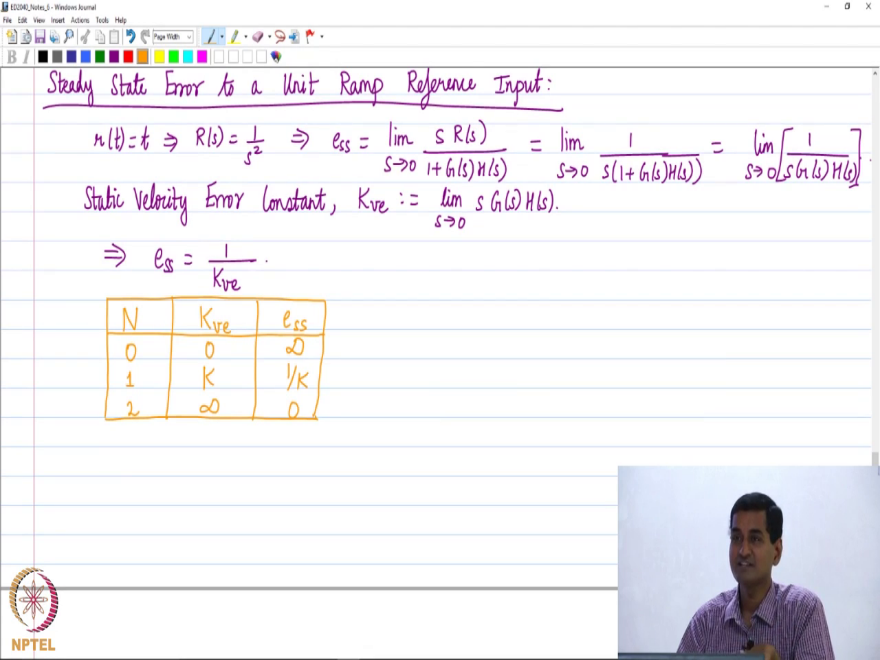 ED2040_Notes_6 - Windows Journal
File Edit View Insert Actions Tools Help
Page Width
B I
Steady State Error to a Unit Ramp Reference Input:
r(t)=t ⇒ R(s) = 1/s² ⇒ ess = lim s→0 s R(s)/(1+G(s)H(s)) = lim s→0 1/(s(1+G(s)H(s))) = lim s→0 [1/(sG(s)H(s))].
Static Velocity Error Constant, Kve := lim s→0 s G(s) H(s).
⇒ ess = 1/Kve.
N Kve ess
0 0 ∞
1 K 1/K
2 ∞ 0
NPTEL